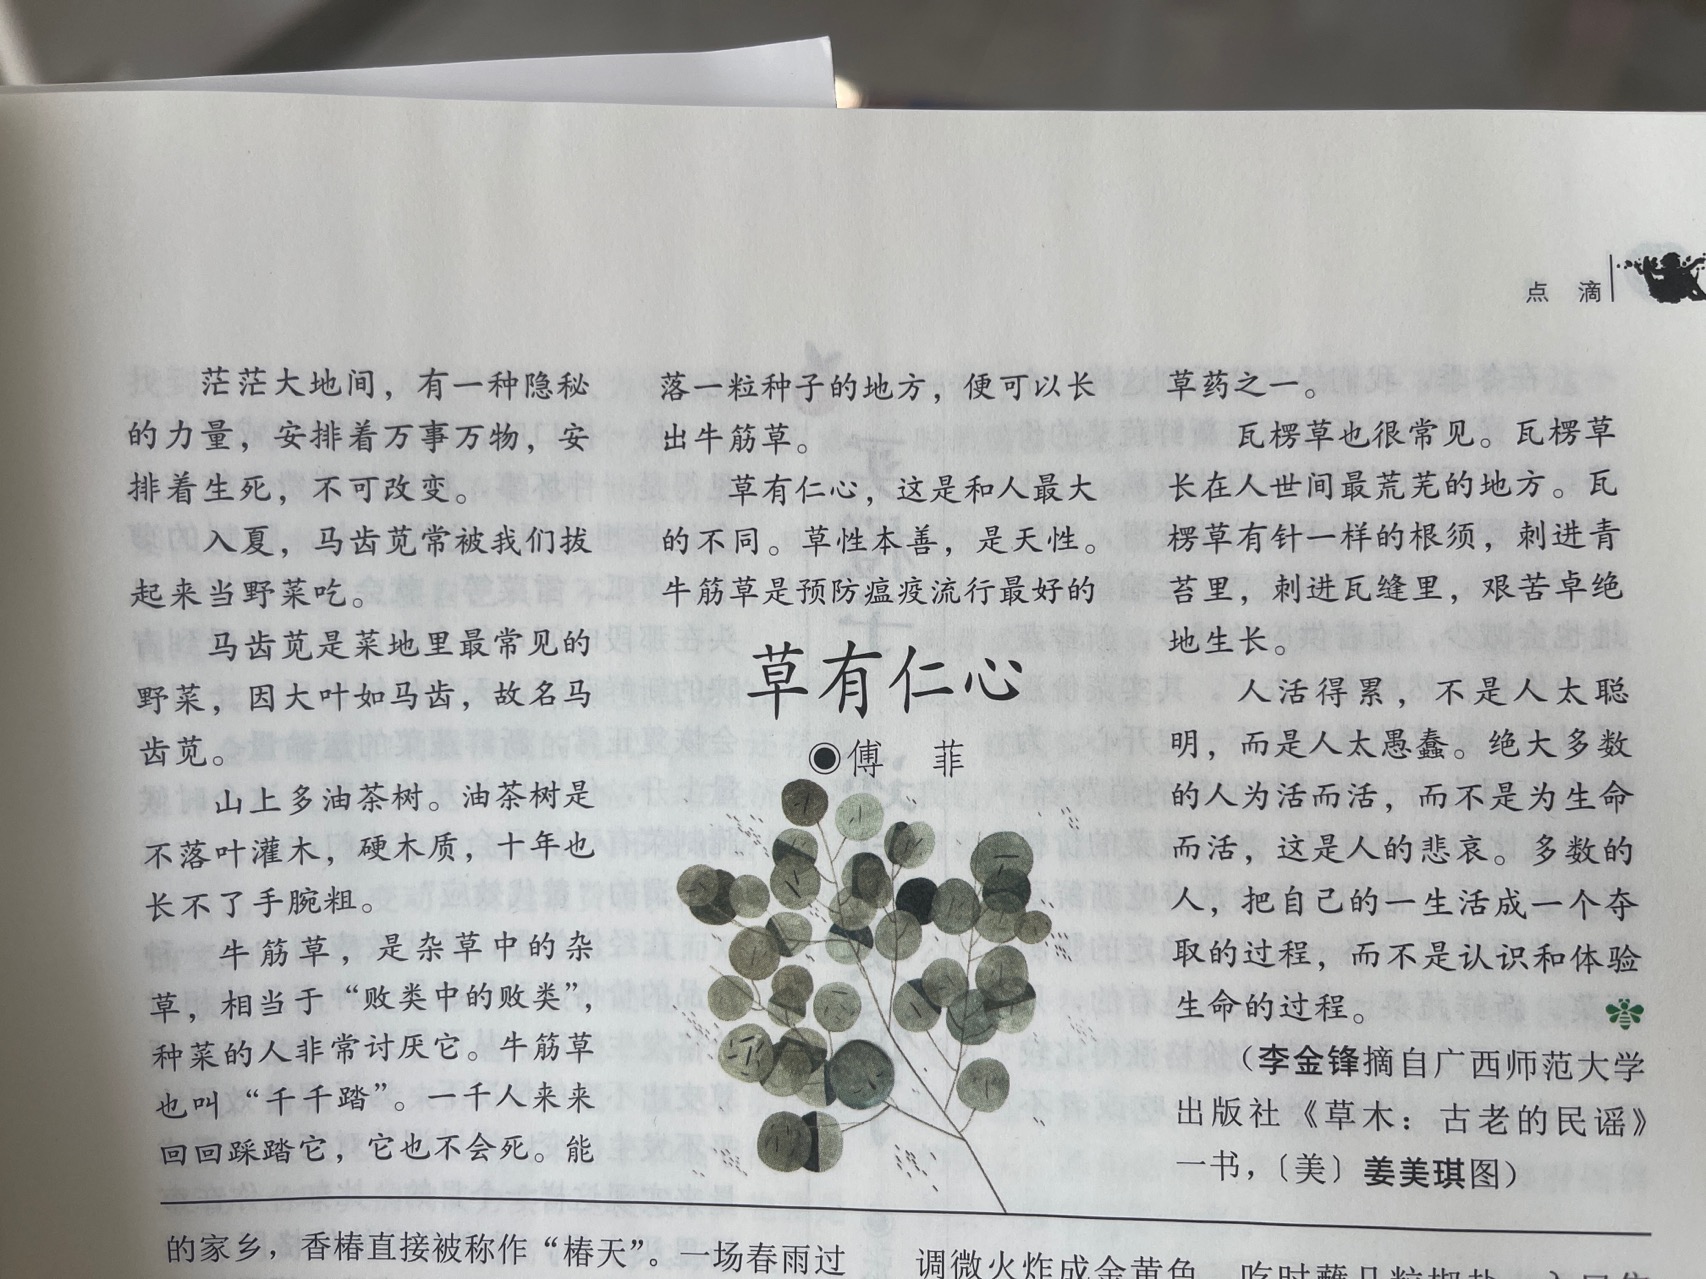 点 滴
茫茫大地间，有一种隐秘
的力量，安排着万事万物，安
排着生死，不可改变。
入夏，马齿苋常被我们拔
起来当野菜吃。
马齿苋是菜地里最常见的
野菜，因大叶如马齿，故名马
齿苋。
山上多油茶树。油茶树是
不落叶灌木，硬木质，十年也
长不了手腕粗。
牛筋草，是杂草中的杂
草，相当于“败类中的败类”，
种菜的人非常讨厌它。牛筋草
也叫“千千踏”。一千人来来
回回踩踏它，它也不会死。能
落一粒种子的地方，便可以长
出牛筋草。
草有仁心，这是和人最大
的不同。草性本善，是天性。
牛筋草是预防瘟疫流行最好的
草有仁心
◉傅 菲
草药之一。
瓦楞草也很常见。瓦楞草
长在人世间最荒芜的地方。瓦
楞草有针一样的根须，刺进青
苔里，刺进瓦缝里，艰苦卓绝
地生长。
人活得累，不是人太聪
明，而是人太愚蠢。绝大多数
的人为活而活，而不是为生命
而活，这是人的悲哀。多数的
人，把自己的一生活成一个夺
取的过程，而不是认识和体验
生命的过程。
（李金锋摘自广西师范大学
出版社《草木：古老的民谣》
一书，〔美〕姜美琪图）
的家乡，香椿直接被称作“椿天”。一场春雨过
调微火炸成金黄色，吃时蘸几粒椒盐，入口生